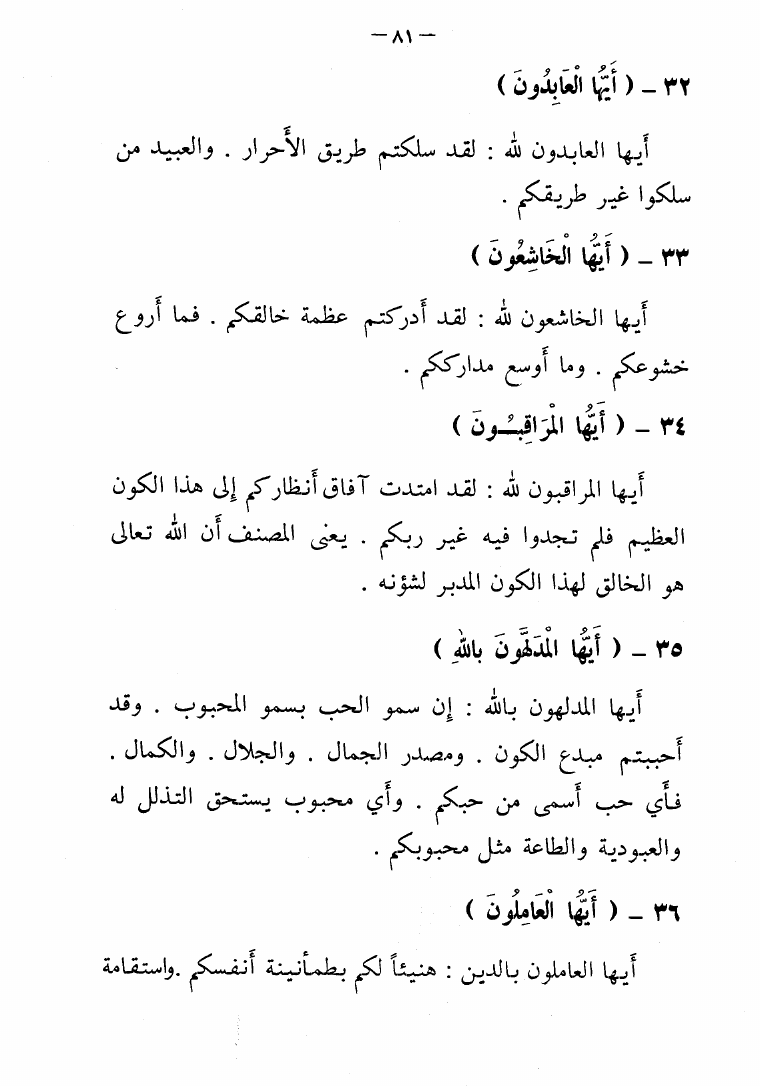 — ٨١ —
٣٢ — ( أَيُّهَا الْعَابِدُونَ )
أيها العابدون لله : لقد سلكتم طريق الأحرار . والعبيد من
سلكوا غير طريقكم .
٣٣ — ( أَيُّهَا الْخَاشِعُونَ )
أيها الخاشعون لله : لقد أدركتم عظمة خالقكم . فما أروع
خشوعكم . وما أوسع مدارككم .
٣٤ — ( أَيُّهَا الْمُرَاقِبُونَ )
أيها المراقبون لله : لقد امتدت آفاق أنظاركم إلى هذا الكون
العظيم فلم تجدوا فيه غير ربكم . يعنى المصنف أن الله تعالى
هو الخالق لهذا الكون المدبر لشؤنه .
٣٥ — ( أَيُّهَا الْمُدَلَّهُونَ بِاللهِ )
أيها المدلهون بالله : إن سمو الحب بسمو المحبوب . وقد
أحببتم مبدع الكون . ومصدر الجمال . والجلال . والكمال .
فأي حب أسمى من حبكم . وأي محبوب يستحق التذلل له
والعبودية والطاعة مثل محبوبكم .
٣٦ — ( أَيُّهَا الْعَامِلُونَ )
أيها العاملون بالدين : هنيئاً لكم بطمأنينة أنفسكم .واستقامة